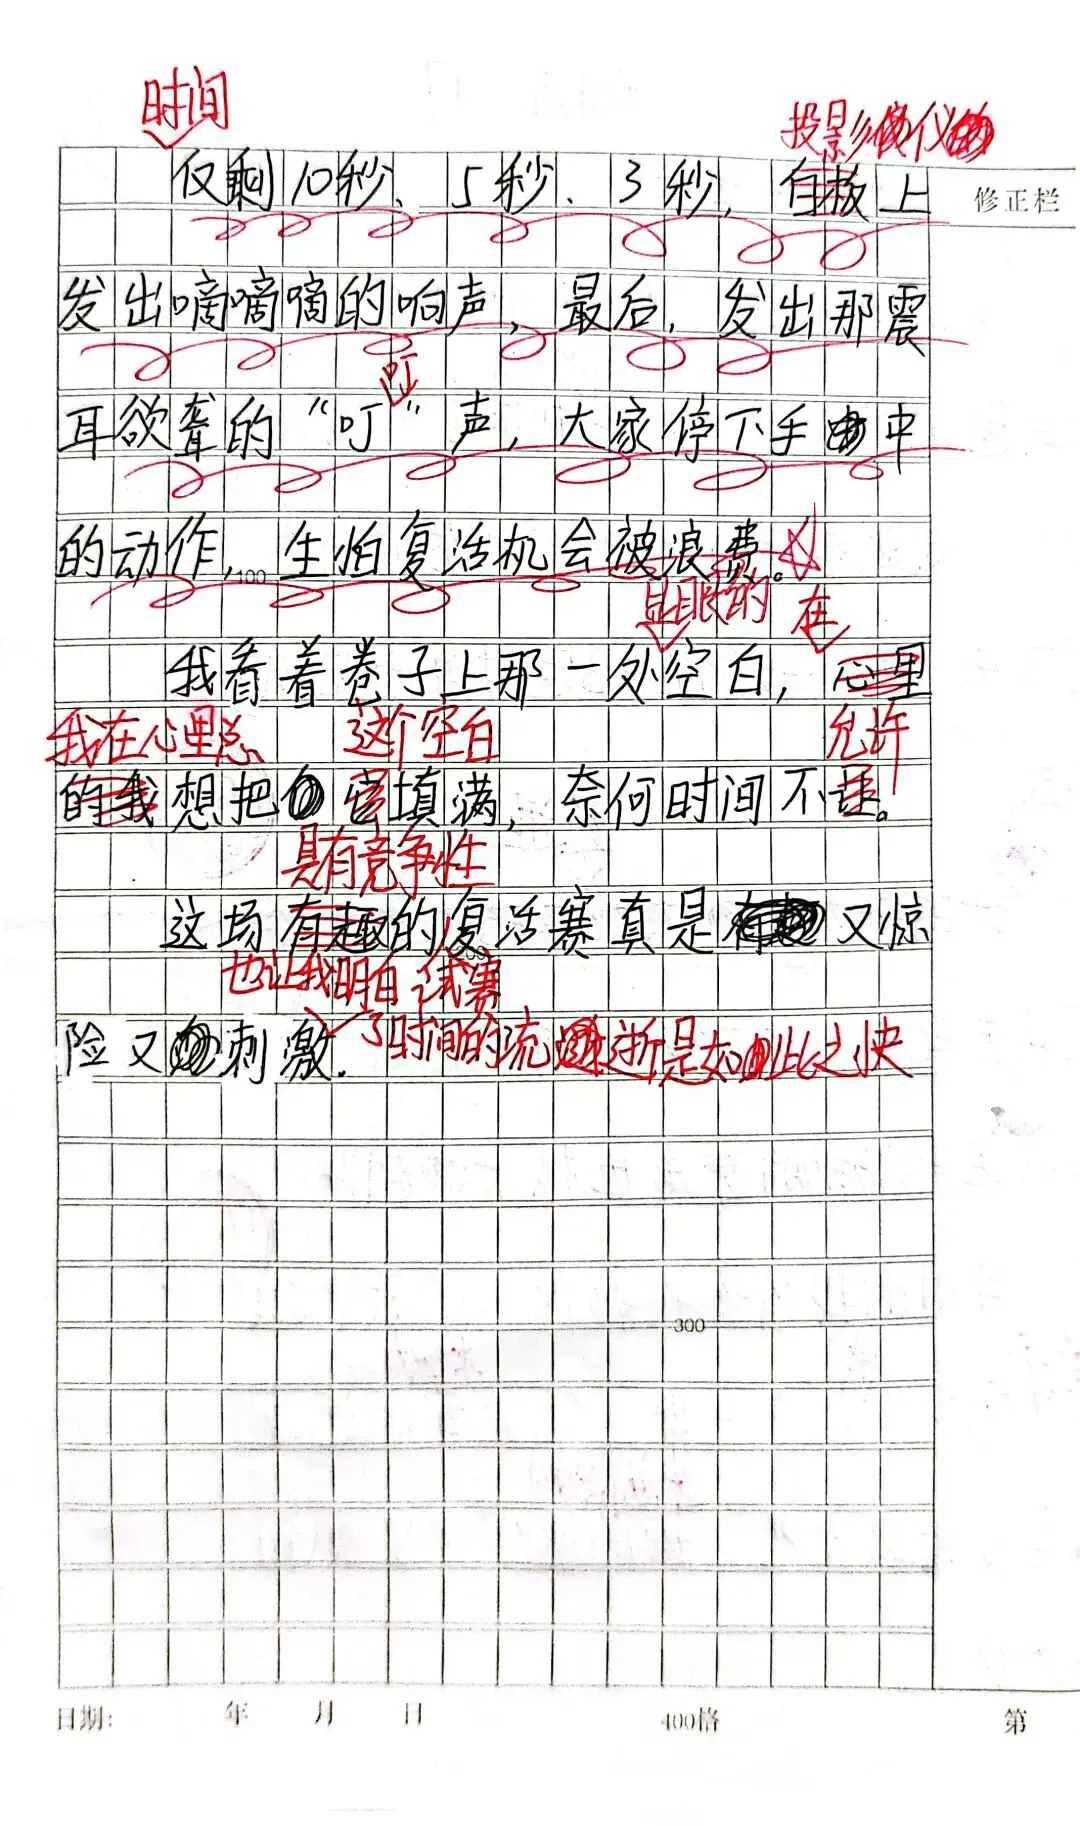 时间
投影仪
仅剩10秒、5秒、3秒，白板上
修正栏
发出嘀嘀嘀的响声，最后，发出那震
叮
耳欲聋的“叮”声，大家停下手中
的动作，生怕复活机会被浪费。
100
显眼的 在
我看着卷子上那一处空白，心里
我在心里总 这个空白 允许
的我想把它填满，奈何时间不
具有竞争性
这场有趣的复活赛真是又惊
200
也让我明白 试赛
险又刺激.
了时间的流逝是如此之快
300
日期： 年 月 日 400格 第